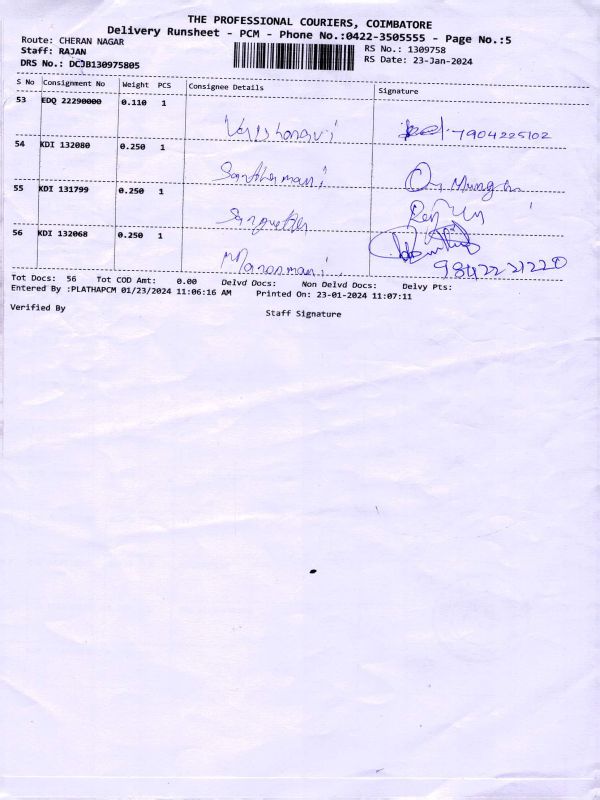 THE PROFESSIONAL COURIERS, COIMBATORE
Delivery Runsheet - PCM - Phone No.:0422-3505555 - Page No.:5
Route: CHERAN NAGAR
RS No.: 1309758
Staff: RAJAN
RS Date: 23-Jan-2024
DRS No.: DCJB130975805
S No Consignment No Weight PCS Consignee Details Signature
53 EDQ 22290000 0.110 1
7904225102
54 KDI 132080 0.250 1
Santhamani
55 KDI 131799 0.250 1
56 KDI 132068 0.250 1
Manonmani
9842221220
Tot Docs: 56 Tot COD Amt: 0.00 Delvd Docs: Non Delvd Docs: Delvy Pts:
Entered By :PLATHAPCM 01/23/2024 11:06:16 AM Printed On: 23-01-2024 11:07:11
Verified By
Staff Signature